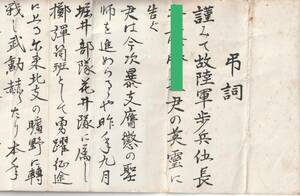 弔詞
謹んで故陸軍歩兵伍長
君の英霊に
告ぐ
君は今次暴支膺懲の聖
師を進めらるゝや昨年九月
堀井部隊花井隊に属し
擲弾筒班として勇躍征途
に上る爾来北支の曠野に轉
戦し武勲赫々たり本年